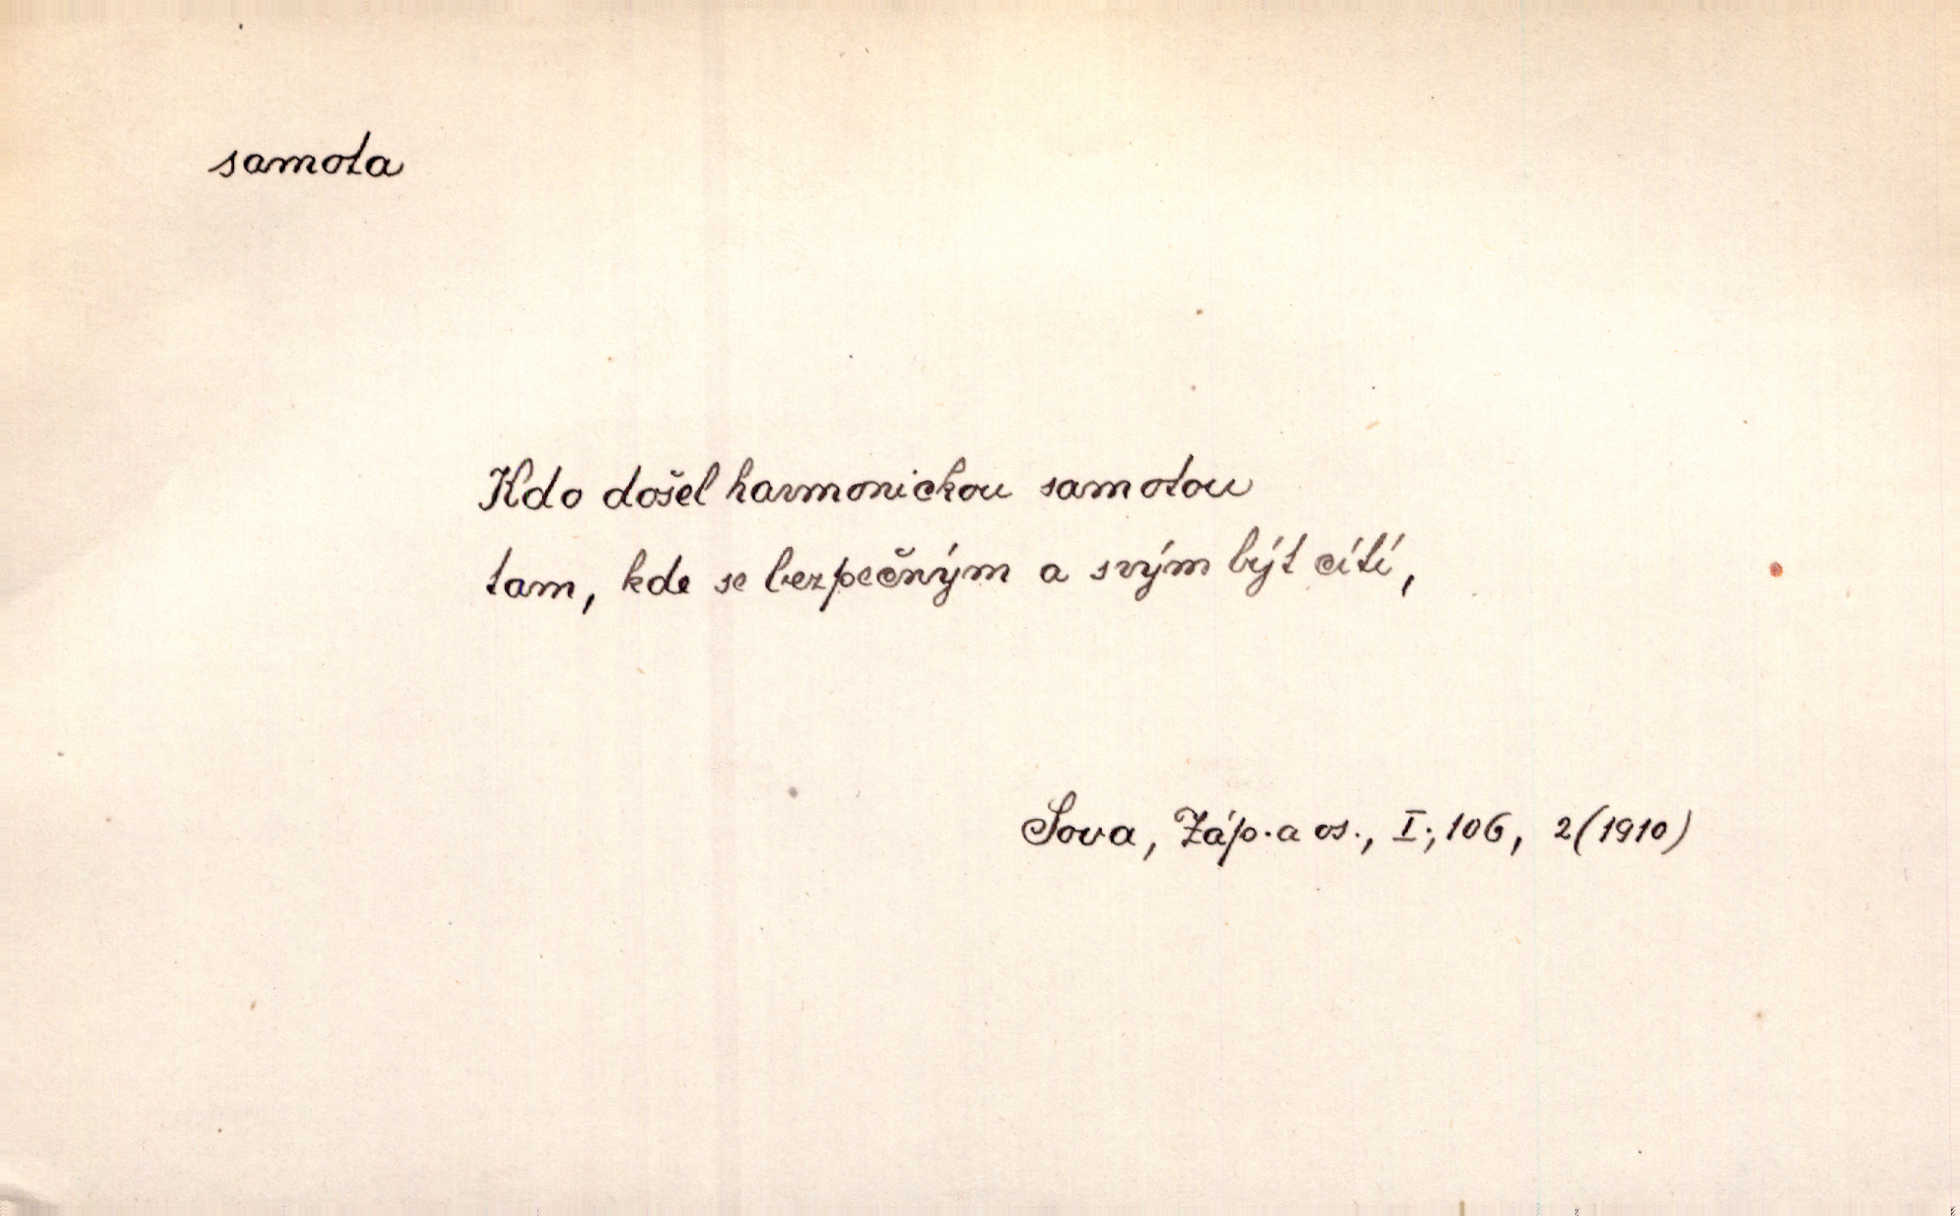 samota
Kdo došel harmonickou samotou
tam, kde se bezpečným a svým být cítí,
Sova, Záp. a os., I, 106, 2 (1910)